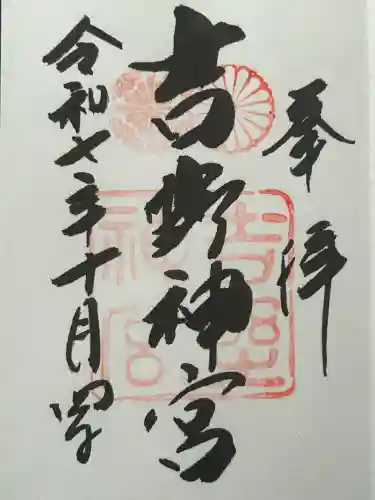 奉拝
吉野神宮
令和七年十月